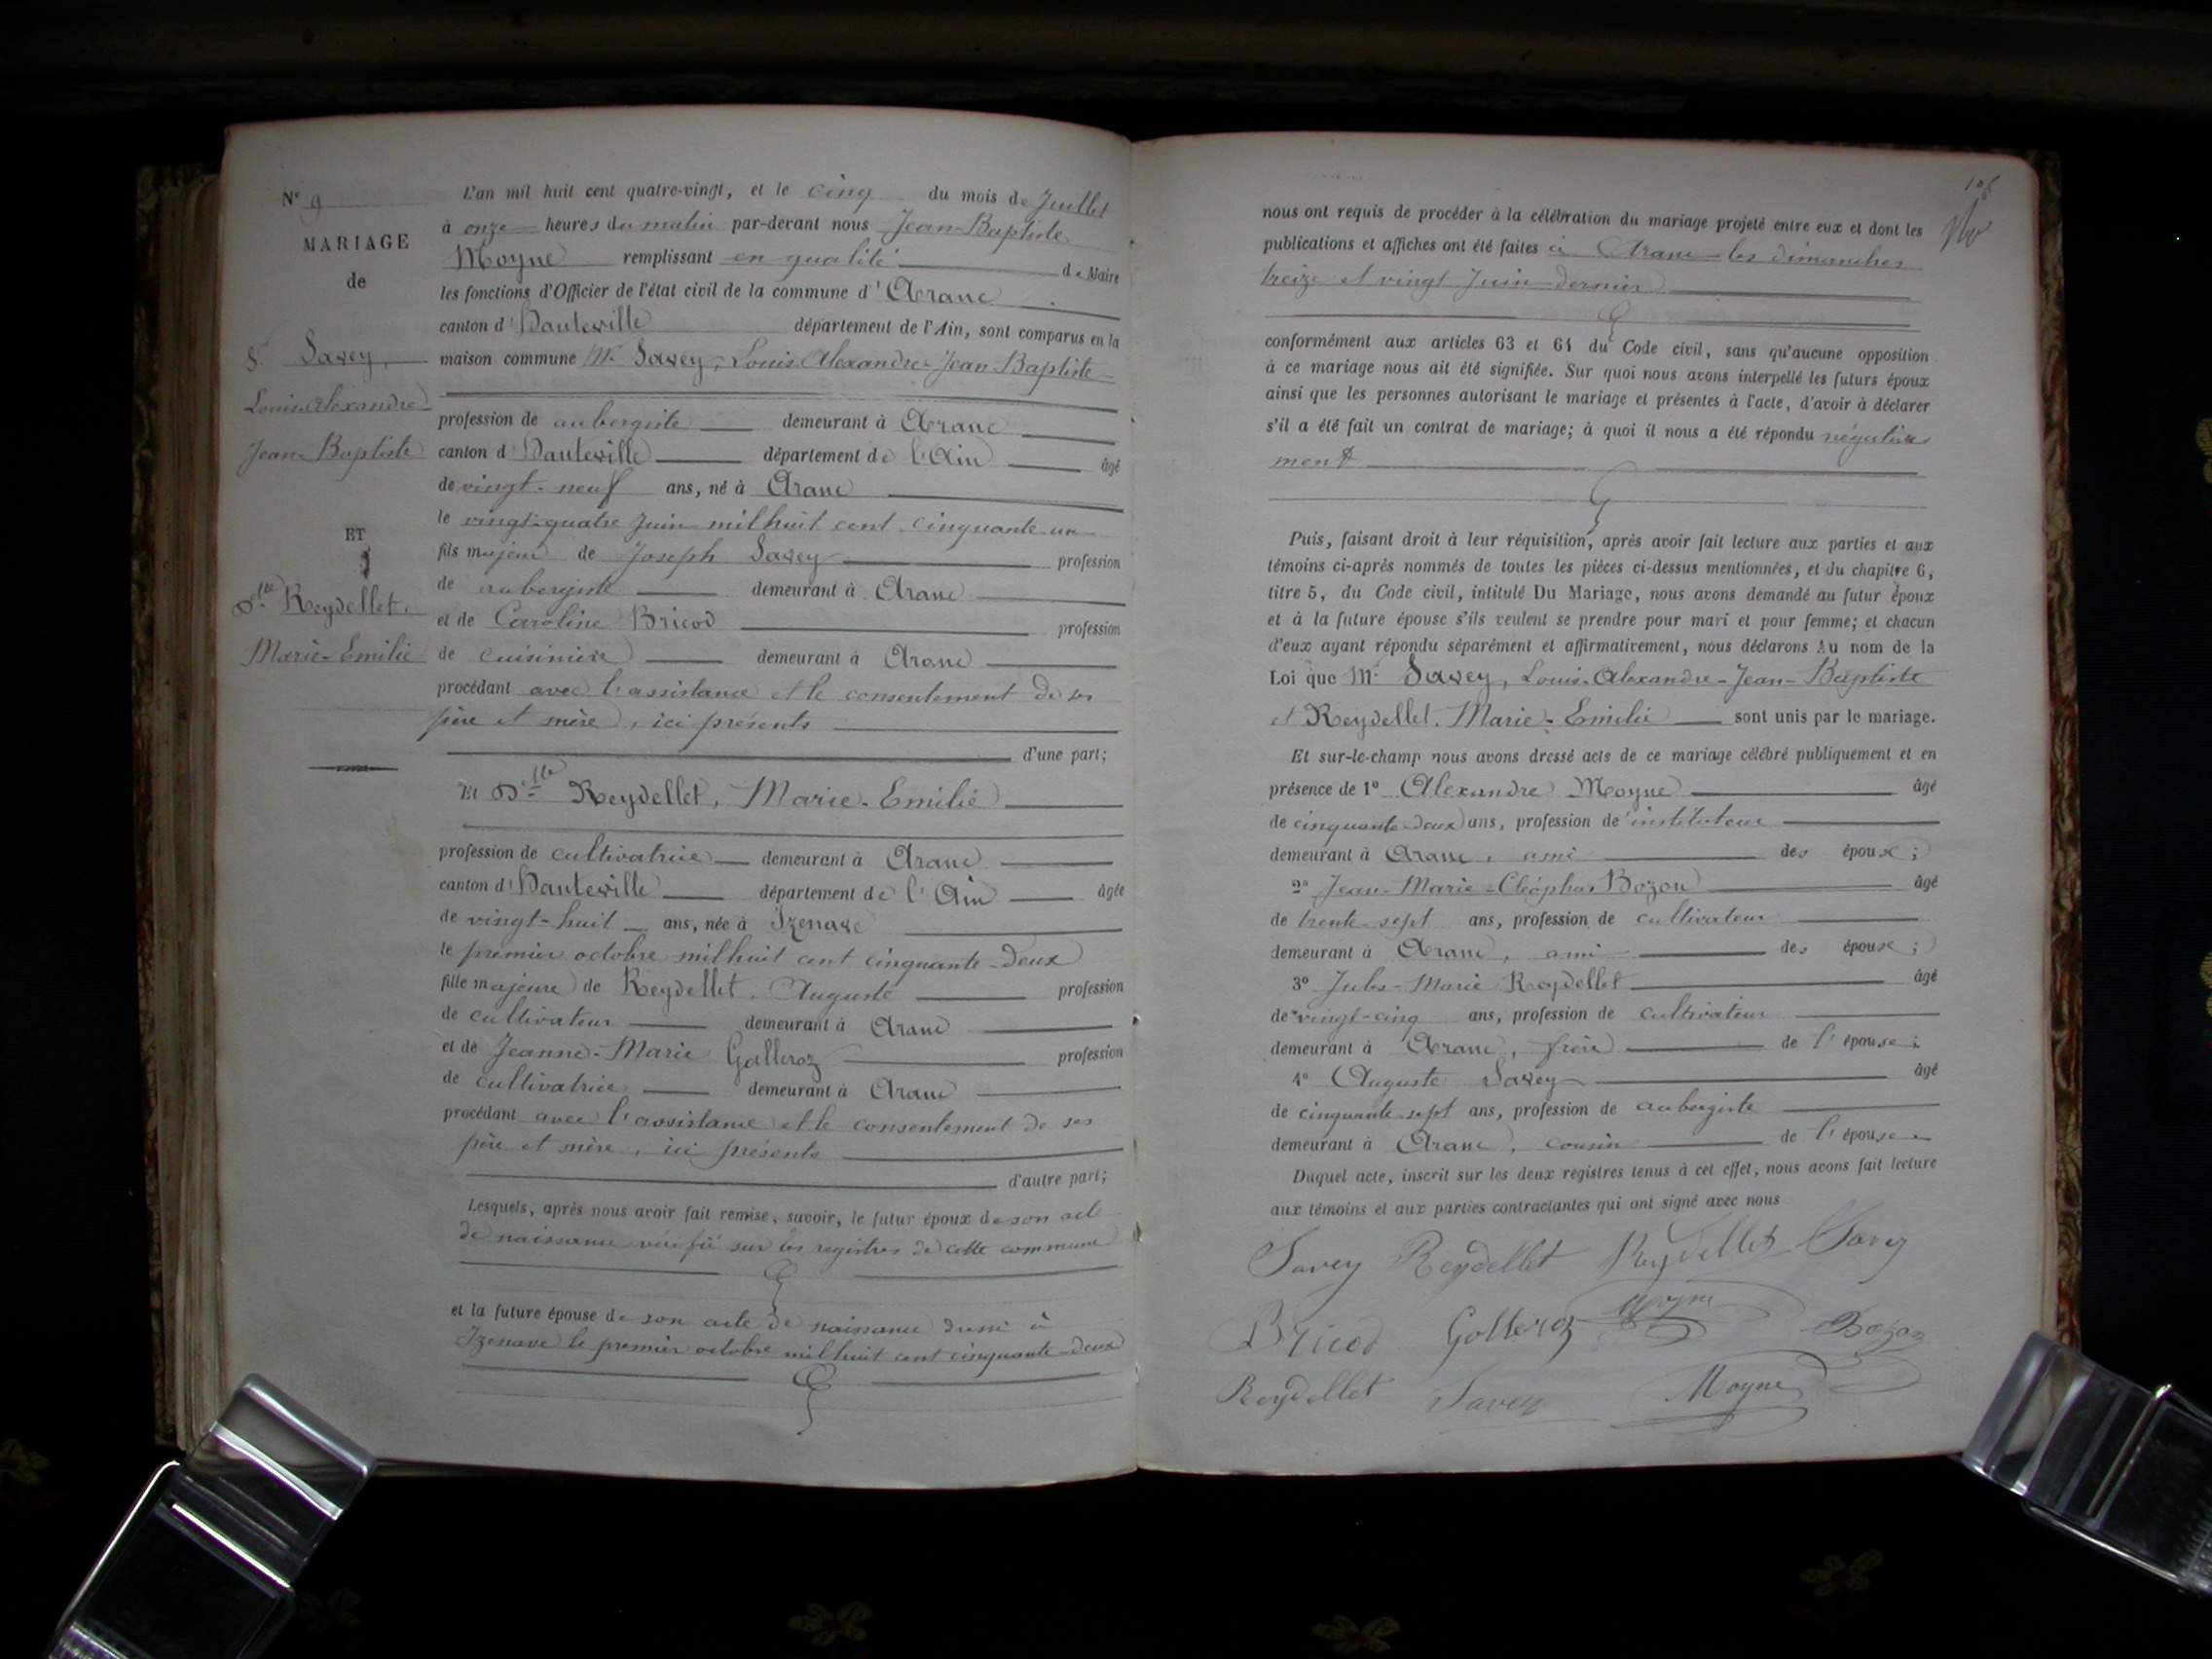 N° 9
MARIAGE
de
S. Savey,
Louis Alexandre
Jean-Baptiste
ET
Dlle Reydellet,
Marie-Emilie
L'an mil huit cent quatre-vingt, et le cinq du mois de Juillet
à onze heures du matin par-devant nous Jean-Baptiste
Moyne remplissant en qualité de Maire
les fonctions d'Officier de l'état civil de la commune d'Aranc
canton d'Hauteville département de l'Ain, sont comparus en la
maison commune Mr Savey, Louis-Alexandre-Jean-Baptiste
profession de aubergiste demeurant à Aranc
canton d'Hauteville département de l'Ain âgé
de vingt-neuf ans, né à Aranc
le vingt-quatre Juin mil huit cent cinquante-un
fils majeur de Joseph Savey profession
de aubergiste demeurant à Aranc
et de Caroline Bricod profession
de cuisinière demeurant à Aranc
procédant avec l'assistance et le consentement de ses
père et mère, ici présents
d'une part;
Et Dlle Reydellet, Marie-Emilie
profession de cultivatrice demeurant à Aranc
canton d'Hauteville département de l'Ain âgée
de vingt-huit ans, née à Izenave
le premier octobre mil huit cent cinquante-deux
fille majeure de Reydellet, Auguste profession
de cultivateur demeurant à Aranc
et de Jeanne-Marie Golleroz profession
de cultivatrice demeurant à Aranc
procédant avec l'assistance et le consentement de ses
père et mère, ici présents
d'autre part;
Lesquels, après nous avoir fait remise, savoir, le futur époux de son acte
de naissance vérifié sur les registres de cette commune
et la future épouse de son acte de naissance dressé à
Izenave le premier octobre mil huit cent cinquante-deux
106
nous ont requis de procéder à la célébration du mariage projeté entre eux et dont les
publications et affiches ont été faites à Aranc les dimanches
treize et vingt Juin dernier
conformément aux articles 63 et 64 du Code civil, sans qu'aucune opposition
à ce mariage nous ait été signifiée. Sur quoi nous avons interpellé les futurs époux
ainsi que les personnes autorisant le mariage et présentes à l'acte, d'avoir à déclarer
s'il a été fait un contrat de mariage; à quoi il nous a été répondu négative
ment
Puis, faisant droit à leur réquisition, après avoir fait lecture aux parties et aux
témoins ci-après nommés de toutes les pièces ci-dessus mentionnées, et du chapitre 6,
titre 5, du Code civil, intitulé Du Mariage, nous avons demandé au futur époux
et à la future épouse s'ils veulent se prendre pour mari et pour femme; et chacun
d'eux ayant répondu séparément et affirmativement, nous déclarons Au nom de la
Loi que Mr Savey, Louis-Alexandre-Jean-Baptiste
et Reydellet, Marie-Emilie sont unis par le mariage.
Et sur-le-champ nous avons dressé acte de ce mariage célébré publiquement et en
présence de 1° Alexandre Moyne âgé
de cinquante-deux ans, profession de instituteur
demeurant à Aranc, ami des époux;
2° Jean-Marie-Cléophas Bozon âgé
de trente-sept ans, profession de cultivateur
demeurant à Aranc, ami des époux;
3° Jules-Marie Reydellet âgé
de vingt-cinq ans, profession de cultivateur
demeurant à Aranc, frère de l'épouse;
4° Auguste Savey âgé
de cinquante-sept ans, profession de aubergiste
demeurant à Aranc, cousin de l'épouse
Duquel acte, inscrit sur les deux registres tenus à cet effet, nous avons fait lecture
aux témoins et aux parties contractantes qui ont signé avec nous
Savey Reydellet Reydellet Savey
Bricod Golleroz Moyne Bozon
Reydellet Savey Moyne